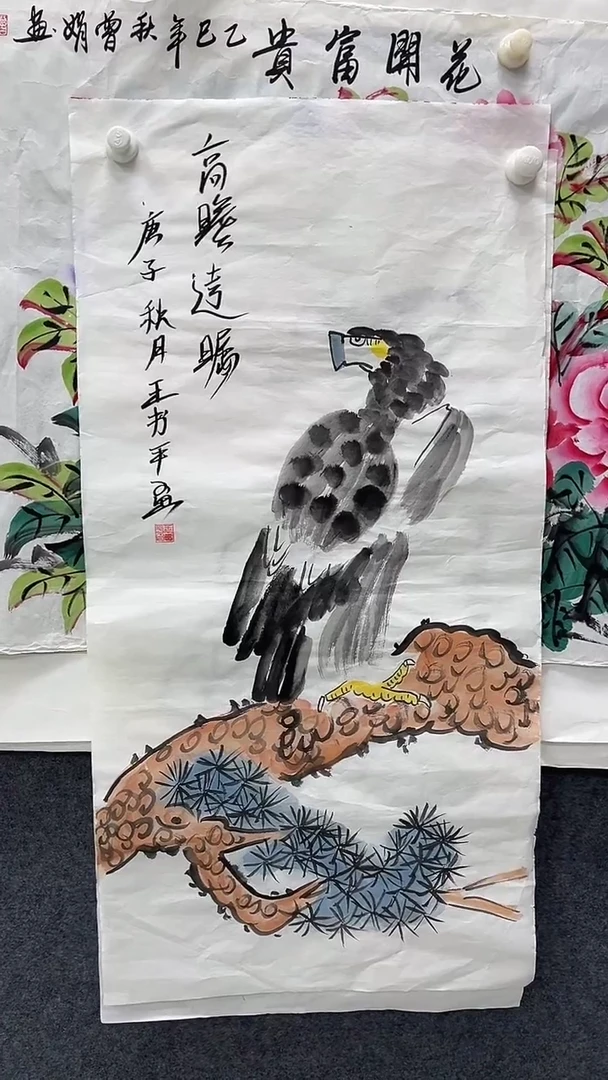 花開富貴 乙巳年秋曾娟画
高瞻远瞩
庚子秋月王书平画